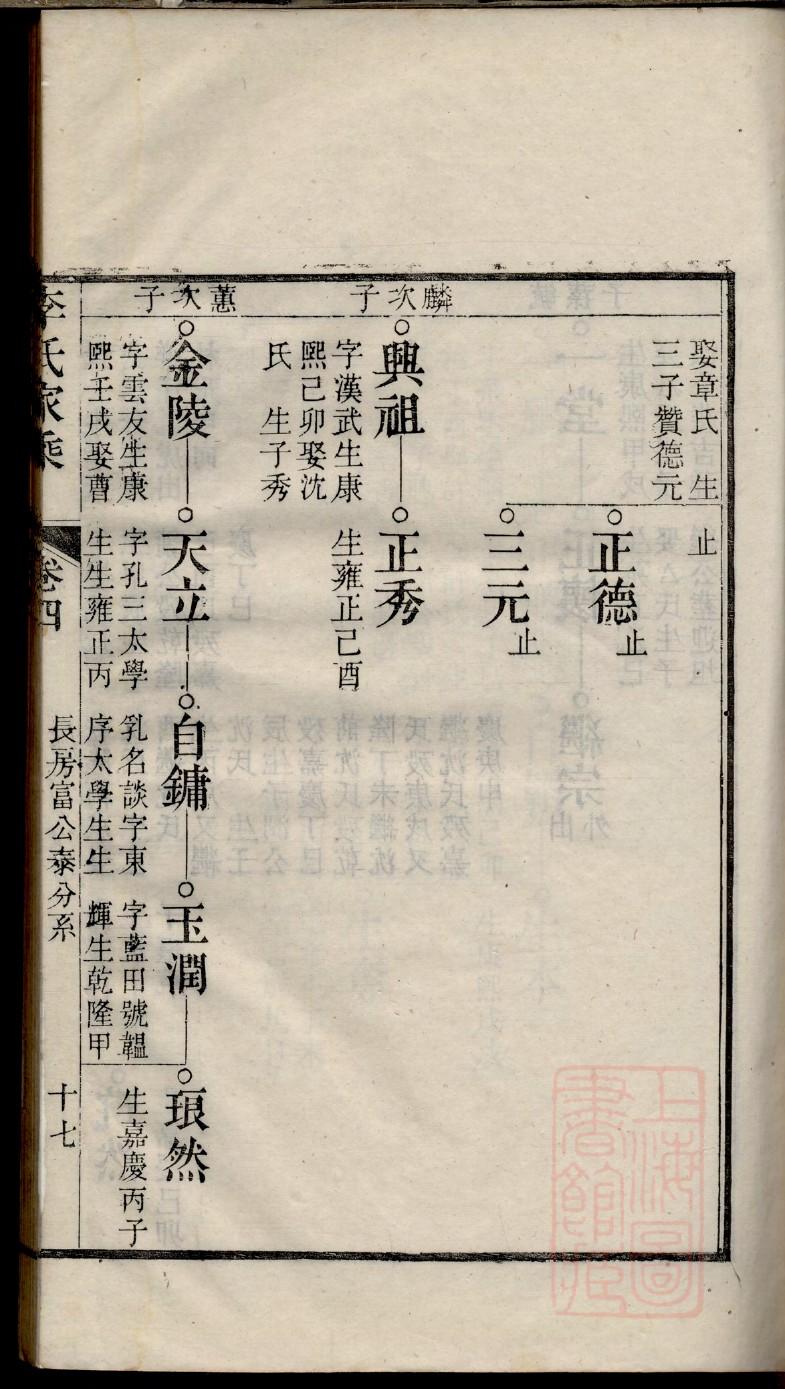 娶章氏 生
三子贊德元
止
正德
止
三元
止
麟次子
興祖
字漢武生康
熙己卯娶沈
氏 生子秀
正秀
生雍正己酉
蕙次子
金陵
字雲友生康
熙壬戌娶曹
天立
字孔三太學
生生雍正丙
自鏞
乳名談字東
序太學生生
玉潤
字藍田號韞
輝生乾隆甲
琅然
生嘉慶丙子
李氏家乘
卷四
長房富公泰分系
十七
上海圖
書館藏